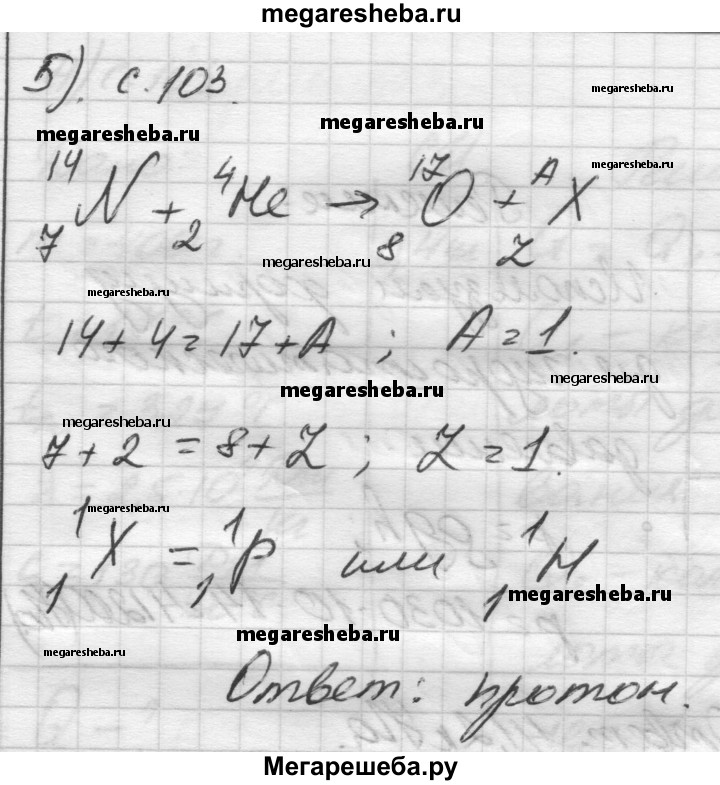 megaresheba.ru
5). с. 103.
megaresheba.ru
megaresheba.ru
megaresheba.ru
¹⁴₇N + ⁴₂He → ¹⁷₈O + ᴬ_ZX
megaresheba.ru
megaresheba.ru
megaresheba.ru
14 + 4 = 17 + A ; A = 1.
megaresheba.ru
megaresheba.ru
megaresheba.ru
7 + 2 = 8 + Z ; Z = 1.
megaresheba.ru
¹₁X = ¹₁p или ¹₁H
megaresheba.ru
megaresheba.ru
megaresheba.ru
Ответ: протон.
Мегарешеба.ру